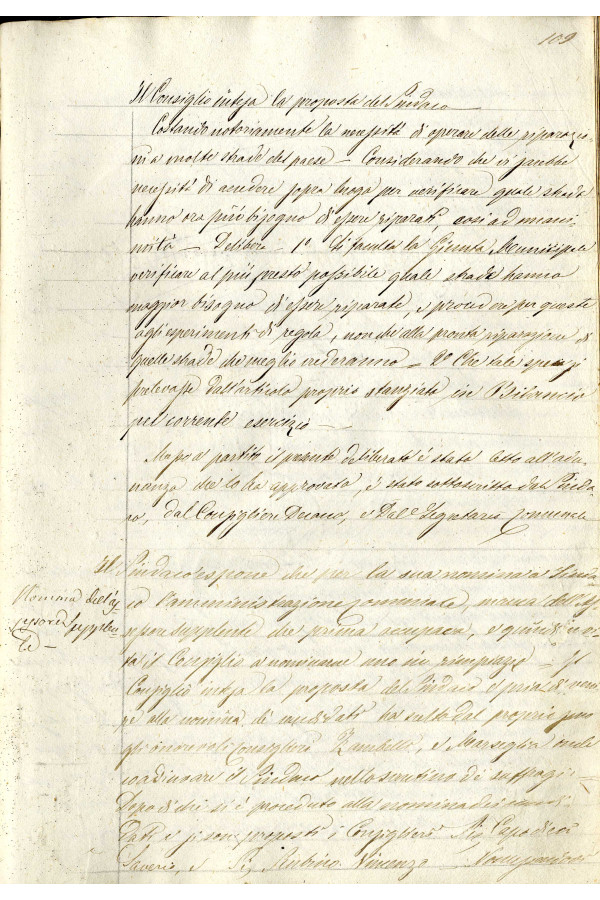 109
Il Consiglio intesa la proposta del Sindaco
Costando notoriamente la necessità di operare delle riparazio-
ni a molte strade del paese – Considerando che vi sarebbe
necessità di accedere sopra luogo per verificare quale strade
hanno ora più bisogno di essere riparati, così ad
– Delibera – 1º Si facolta la Giunta Municipale
verificare al più presto possibile quale strade hanno
maggior bisogno di essere riparate, e procedere per queste
agli esperimenti di regola, non che alla pronta riparazione di
quelle strade che meglio crederanno – 2º Che tale spesa si
prelevasse dall'articolo proprio stanziato in Bilancio
pel corrente esercizio –
Messo a partito il presente deliberato è stato letto all'adu-
nanza che lo ha approvato, è stato sottoscritto dal Sinda-
co, dal Consigliere Decano, e dal Segretario Comunale
Il Sindaco espone che per la sua nomina a Sinda-
co l'amministrazione comunale, manca dell'As-
sessore supplente che prima occupava, e quindi invi-
ta il Consiglio a nominarne uno in rimpiazzo – Il
Consiglio intesa la proposta del Sindaco e pria di veni-
re alla nomina de' candidati ha scelto dal proprio seno
gli onorevoli Consiglieri Zambelli, e Marsiglia onde
coadiuvare il Sindaco nello scrutinio de' suffragi –
Dopo di che si è proceduto alla nomina dei candi-
dati e si sono proposti i Consiglieri Sig. Capodieci
Saverio, e Sig. Rubino Vincenzo –
Nomina dell'As-
sessore supplen-
te –